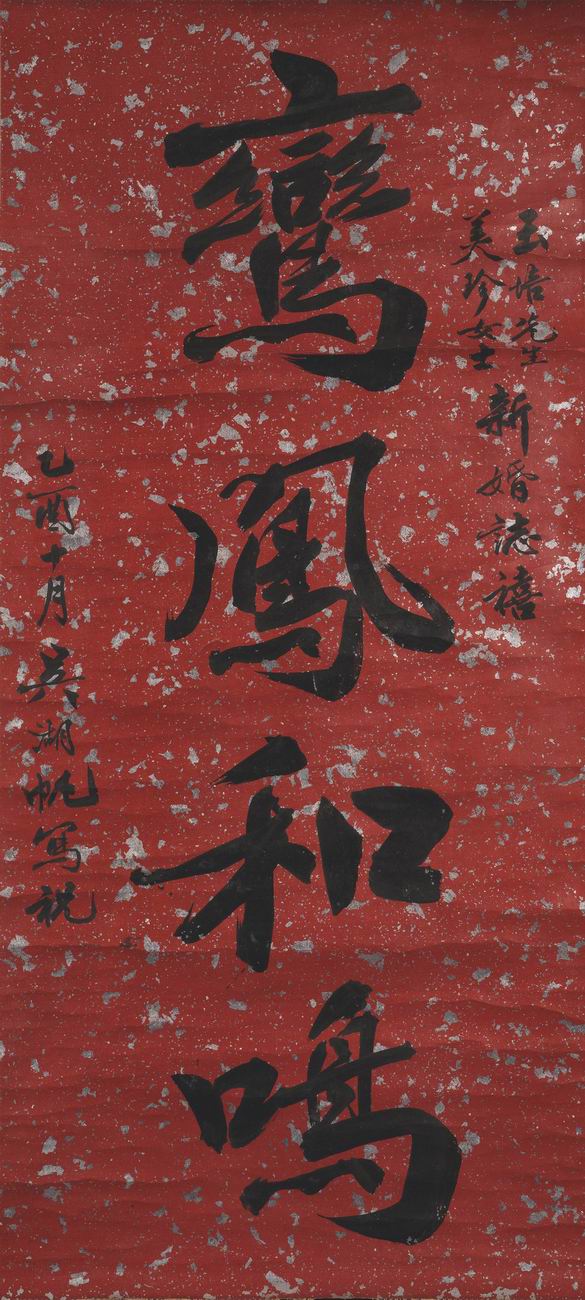 玉培先生
美珍女士
新婚誌禧
鸞鳳和鳴
乙酉十月 吳湖帆寫祝